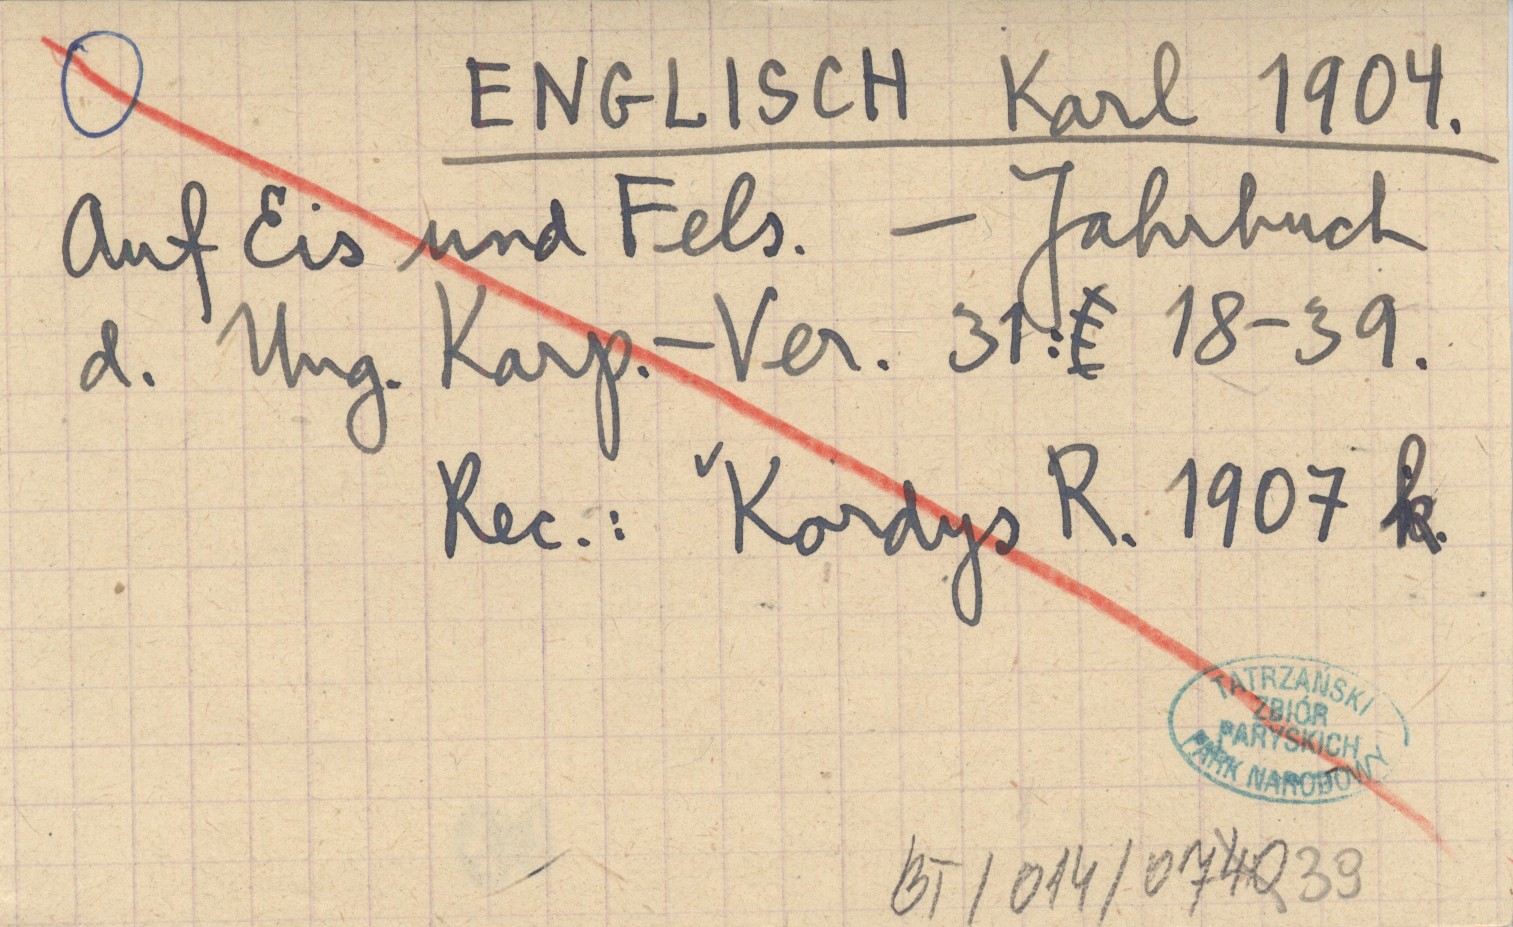 ENGLISCH Karl 1904.
Auf Eis und Fels. — Jahrbuch
d. Ung. Karp.-Ver. 31: 18-39.
Rec.: Kordys R. 1907 k.
TATRZAŃSKI
ZBIÓR
PARYSKICH
PARK NARODOWY
BT/014/